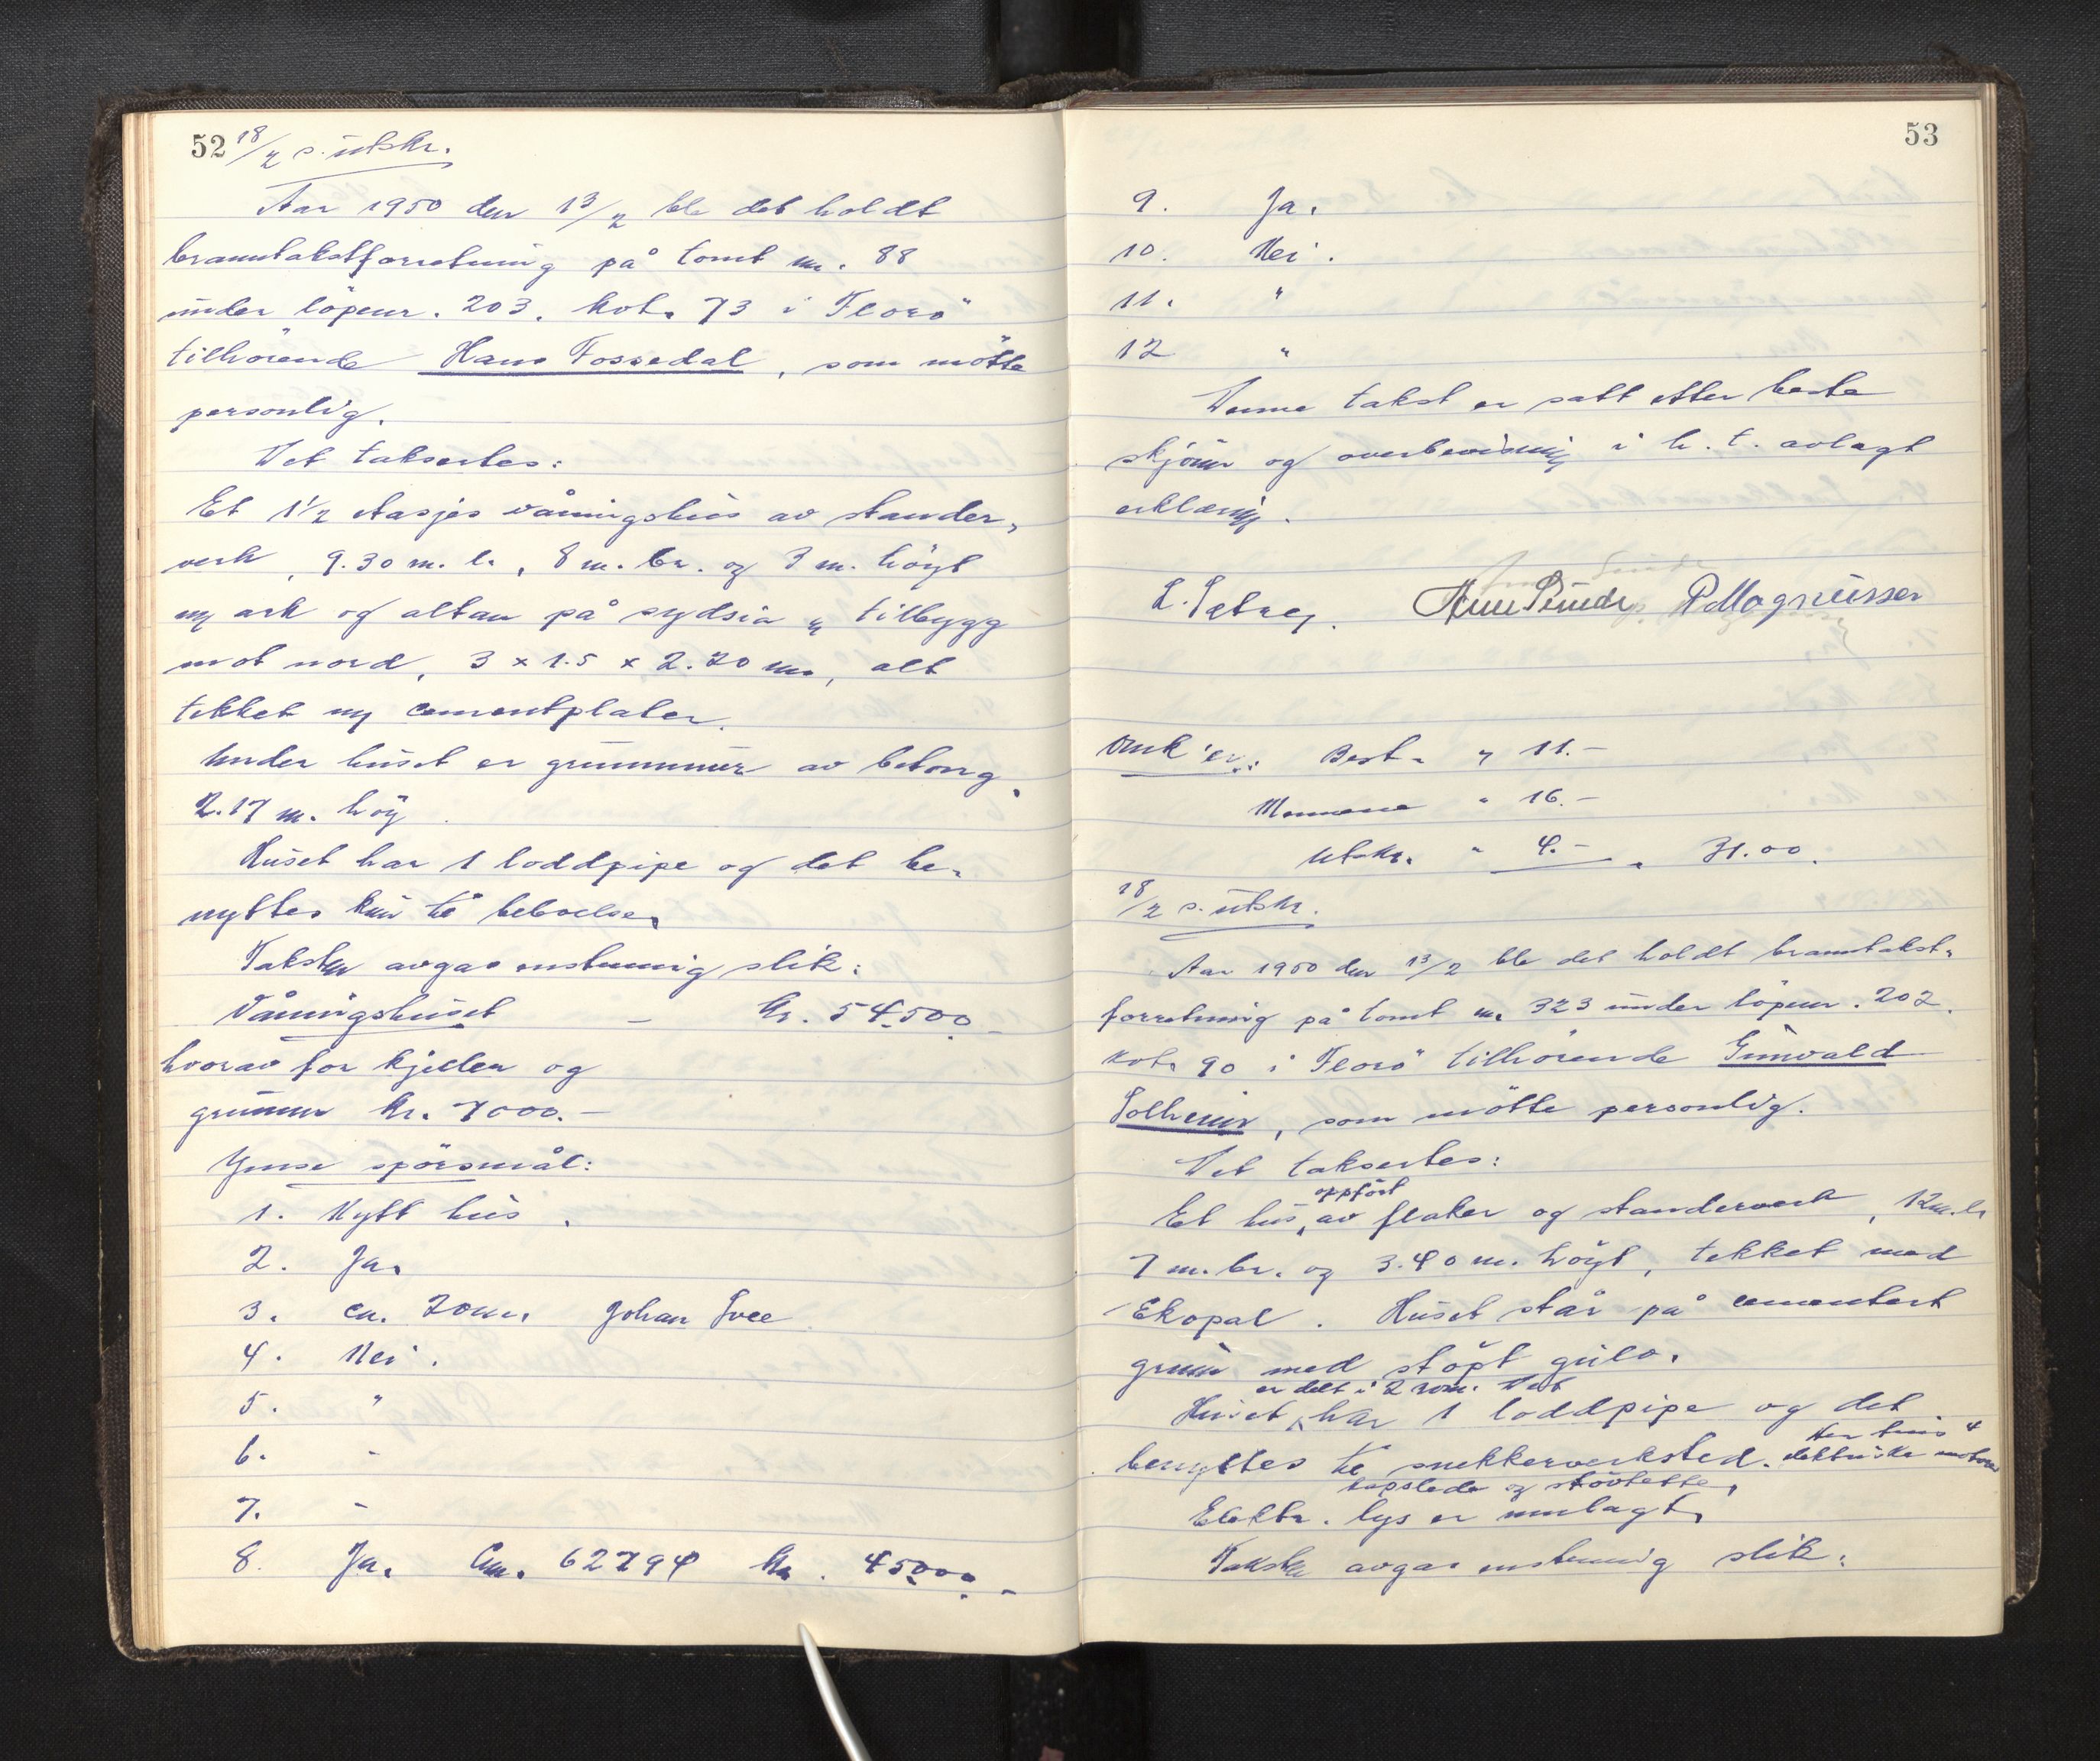 52 18/2 s. utskr.
Aar 1950 den 13/2 ble det holdt
branntakstforretning på tomt nr. 88
under löpenr. 203. kot. 73 i Florö
tilhörende Hans Fossedal, som mötte
personlig.
Det taksertes:
Et 1½ etasjes våningshus av stander-
verk, 9.30 m. l., 8 m. br. og 3 m. höyt
m/ ark og altan på sydsia, tilbygg
mot nord, 3 x 1.5 x 2.70 m., alt
tekket m/ cementplater.
Under huset er grunnmur av betong,
2.17 m. höy.
Huset har 1 loddpipe og det be-
nyttes kun til beboelse.
Taksten avgas enstemmig slik:
Våningshuset — kr. 54.500.-
hvorav for kjeller og
grunnmur kr. 7000.-
Ymse spörsmål:
1. Nytt hus.
2. Ja.
3. ca. 20 m. Johan Svee
4. Nei.
5. "
6. "
7. "
8. Ja. 62794 kr. 45000.-
53
9. Ja.
10. Nei.
11. "
12 "
Denne takst er satt etter beste
skjönn og overbevisning i h. t. avlagt
erklæring.
L. Sætrej. Arne Sunde P Magnussen
Omk'er.: Best. " 11.-
Mennene " 16.-
Utskr. " 4.- " 31.00.
18/2 s. utskr.
Aar 1950 den 13/2 ble det holdt branntakst-
forretning på tomt nr. 323 under löpenr. 202.
kot. 90 i Florö tilhörende Gunvald
Solheim, som mötte personlig.
Det taksertes:
oppfört
Et hus, av flaker og standerverk, 12 m. l.
7 m. br. og 3.40 m. höyt, tekket med
Ekopal. Huset står på cementert
grunn med stöpt gulv.
er delt i 2 rom. Det
Huset har 1 loddpipe og det
Her finns 4
benyttes til snekkerverksted. elektriske motorer
kapslede og stövtette.
Elektr. lys er innlagt.
Taksten avgas enstemmig slik: